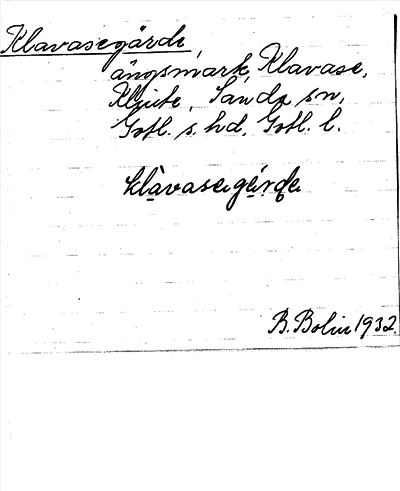 Klavasegärde,
ängsmark, Klavase,
Klinte, Sanda sn,
Gotl. s. hd, Gotl. l.
klàvasegä́rde
B. Bolin 1932.